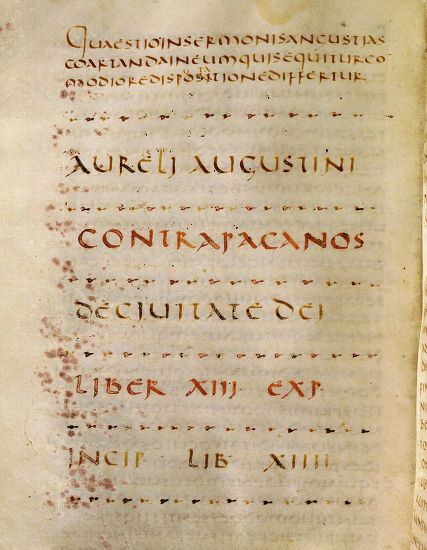 QUAESTIOINSERMONISANGUSTIAS
COARTANDAINEUMQUISEQUITURCO
MODIOREDISPOSITIONEDIFFERTUR
AURELI AUGUSTINI
CONTRAPAGANOS
DECIUITATE DEI
LIBER XIII EXP
INCIP LIB XIIII